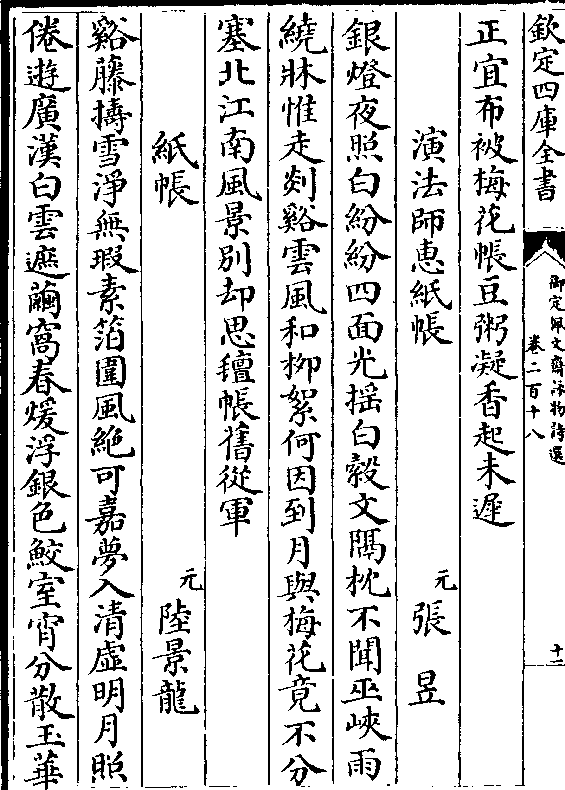 欽定四庫全書
御定佩文齋詠物詩選
卷二百十八
十二
正宜布被梅花帳豆粥凝香起未遲
演法師惠紙帳
元張昱
銀燈夜照白紛紛四面光搖白縠文隔枕不聞巫峽雨
繞牀惟走剡谿雲風和柳絮何因到月與梅花竟不分
塞北江南風景别却思氊帳舊從軍
紙帳
元陸景龍
谿藤擣雪淨無瑕素箔圍風絶可嘉夢入清虛明月照
倦遊廣漢白雲遮繭窩春煖浮銀色鮫室宵分散玉華